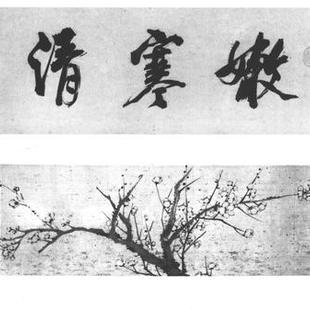 嫩寒清